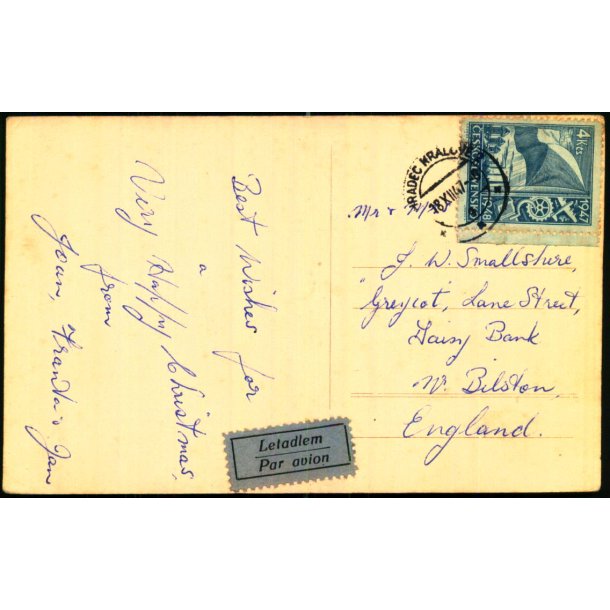 Best Wishes for
a
Very Happy Christmas,
from
Joan, Franta & Jan
HRADEC KRÁLOVÉ
18.XII.47
4 Kčs
ČESKOSLOVENSKO
1947
1948
Mr &
J. W. Smallshire,
Greycot, Lane Street,
Daisy Bank
Nr. Bilston,
England.
Letadlem
Par avion